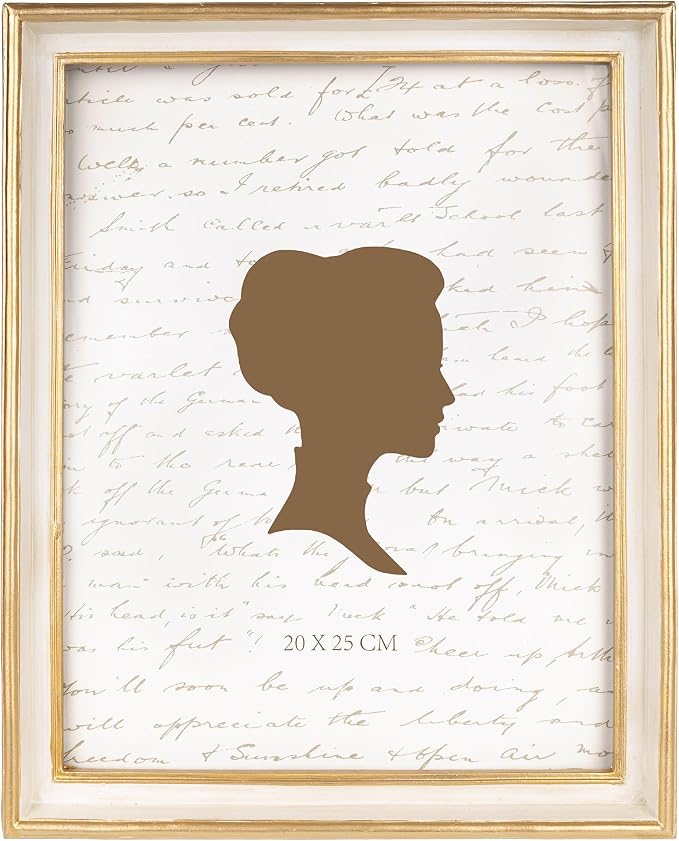 article was sold for 24 at a loss of
so much per cent. What was the cost p
Well, a number got told for the
answer. so I retired badly wounde
Smith called varlet School last
Friday and to had seen
and surviv ked him
emember ch I hop
e varlet hoard the
ory of the German had his foot
t off and asked private to car
n to the rear the way a she
k off the Germa n but Mick w
ignorant of On arrival, it
said, "Whats the bringing in
man with his head off, Mick
His head, is it" say Mick "He told me
was his fut"! 20 X 25 CM Cheer up, Arth
You'll soon be up and doing, a
will appreciate the liberty and
freedom & Sunshine & open air mo